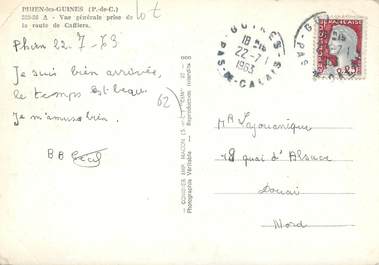 PIHEN-les-GUINES (P.-de-C.)
- Vue générale prise de
la route de Caffiers.
lot
22-7-63
Je suis bien arrivée,
le temps est beau
62
Je m'amuse bien.
BB Cecil
GUINES
18 H
22-7
1963
PAS-DE-CALAIS
COMBIER IMP. MACON (S.-&-L.) "CIM"
Photographie Véritable - Reproduction interdite
0,25
Mr Lajouanique
quai d'Alsace
Douai
Nord